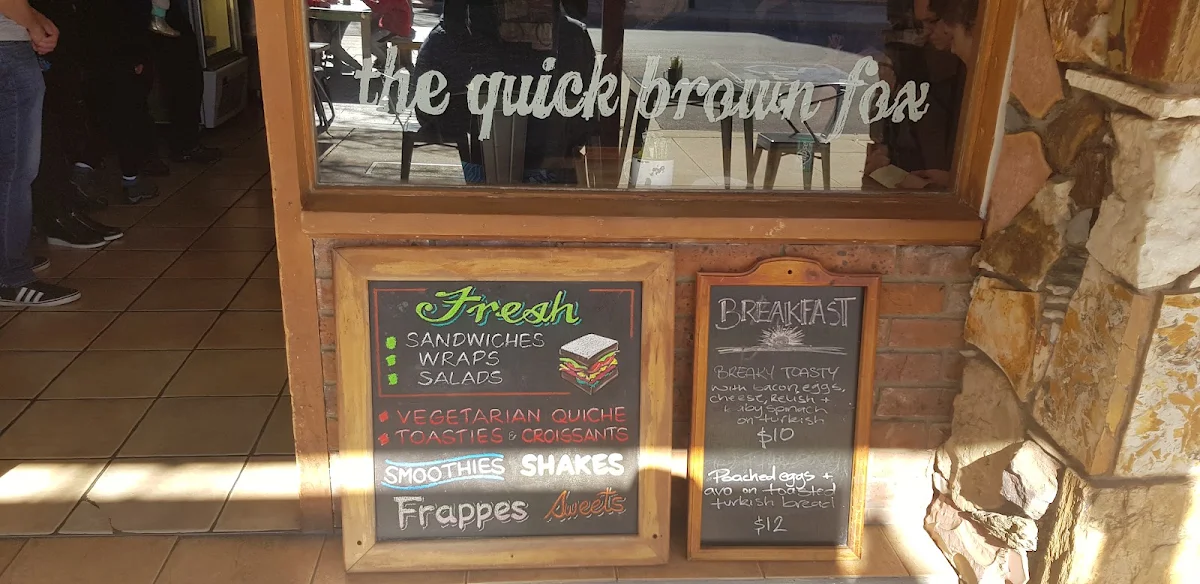 the quick brown fox
Fresh
SANDWICHES
WRAPS
SALADS
VEGETARIAN QUICHE
TOASTIES & CROISSANTS
SMOOTHIES SHAKES
Frappes Sweets
BREAKFAST
BREAKY TOASTY
with bacon, eggs,
cheese, Relish +
baby spinach
on turkish
$10
Poached eggs +
avo on toasted
turkish bread
$12